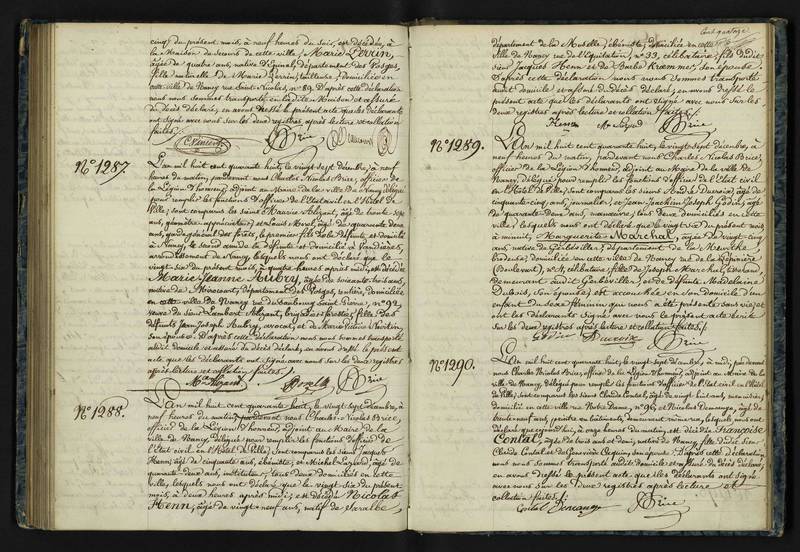 cinq du présent mois, à neuf heures du soir, est décédée, à
la Maison de secours de cette ville, Marie Perrin,
âgée de quatre ans, native d'Epinal, département des Vosges,
fille naturelle de Marie Perrin, tailleuse, domiciliée en
cette ville de Nancy rue Saint Nicolas, nº 89. D'après cette déclaration
nous nous sommes transporté en la dite Maison et assuré
du décès déclaré, en avons dressé le présent acte que les déclarants
ont signé avec nous sur les deux registres, après lecture et collation
faites.
Brice
Nº 1287.
L'an mil huit cent quarante huit, le vingt sept décembre, à neuf
heures du matin, pardevant nous Charles Nicolas Brice, officier de
la Légion d'honneur, adjoint au Maire de la ville de Nancy délégué
pour remplir les fonctions d'officier de l'état civil en l'hôtel de
Ville, sont comparus les sieurs Marie Aligant, âgé de trente sept
ans, géomètre, et Louis Morel, âgé de quarante deux
ans, garde général des forêts, le premier fils de la défunte et domicilié
à Nancy, le second de la défunte et domicilié à
arrondissement de Nancy, lesquels nous ont déclaré que le
vingt six du présent mois, à quatre heures après midi, est décédée
Marie Jeanne Aubry, âgée de soixante huit ans,
native de Mirecourt, département des Vosges, rentière, domiciliée
en cette ville de Nancy rue du faubourg Saint Pierre, nº 92,
veuve du sieur Lambert Aligant, fille des
défunts Jean Joseph Aubry, avocat, et de Marie
son épouse. D'après cette déclaration nous nous sommes transporté
audit domicile et assuré du décès déclaré, en avons dressé le présent
acte que les déclarants ont signé avec nous sur les deux registres
après lecture et collation faites.
Brice
Nº 1288.
L'an mil huit cent quarante huit, le vingt sept décembre, à
neuf heures du matin, pardevant nous Charles Nicolas Brice,
officier de la Légion d'honneur, adjoint au Maire de la
ville de Nancy, délégué pour remplir les fonctions d'officier de
l'état civil en l'hôtel de Ville, sont comparus les sieurs Jacques
Henn, âgé de cinquante ans, ébéniste, et Michel Lazard, âgé de
quarante deux ans, tous deux domiciliés en cette
ville, lesquels nous ont déclaré que le vingt six du présent
mois, à deux heures après midi, est décédé Nicolas
Henn, âgé de vingt neuf ans, natif de Saralbe,
département de la Moselle, ébéniste, domicilié en cette
ville de Nancy rue de l'Equitation, nº 33, célibataire, fils dudit
sieur Jacques Henn et de Barbe Krammer, son épouse.
D'après cette déclaration nous nous sommes transporté
audit domicile et assuré du décès déclaré, en avons dressé le
présent acte que les déclarants ont signé avec nous sur les
deux registres après lecture et collation faites.
Henn Brice
Nº 1289.
L'an mil huit cent quarante huit, le vingt sept décembre, à
neuf heures du matin, pardevant nous Charles Nicolas Brice,
officier de la Légion d'honneur, adjoint au Maire de la ville de
Nancy, délégué pour remplir les fonctions d'officier de l'état civil
en l'hôtel de Ville, sont comparus les sieurs André Ducroix, âgé de
cinquante cinq ans, journalier, et Jean Joachim Joseph Godier, âgé
de quarante deux ans, manœuvre, tous deux domiciliés en cette
ville, lesquels nous ont déclaré que le vingt six du présent mois
à minuit, Marguerite Marchal, âgée de vingt cinq
ans, native de département de la Meurthe
brodeuse, domiciliée en cette ville de Nancy rue de la Pépinière
(Boulevart), nº 31, célibataire, fille de Joseph Marchal,
demeurant audit et de défunte Madelaine
son épouse, est accouchée en son domicile d'un
enfant du sexe féminin qui nous a été présenté sans vie, et
ont les déclarants signé avec nous le présent acte
sur les deux registres après lecture et collation faites.
Godier Ducroix Brice
Nº 1290.
L'an mil huit cent quarante huit, le vingt sept décembre, à midi, pardevant
nous Charles Nicolas Brice, officier de la Légion d'honneur, adjoint au Maire de la
ville de Nancy, délégué pour remplir les fonctions d'officier de l'état civil en l'hôtel
de Ville, sont comparus les sieurs Claude Contal, âgé de vingt huit ans, menuisier,
domicilié en cette ville rue Notre Dame, nº 95, et Nicolas Demenge, âgé de
lesquels nous ont
déclaré que aujourd'hui, à onze heures du matin, est décédée Françoise
Contal, âgée de trois ans et demi, native de Nancy, fille dudit sieur
Claude Contal et de Geneviève son épouse. D'après cette déclaration
nous nous sommes transporté audit domicile et assuré du décès déclaré,
en avons dressé le présent acte que les déclarants ont signé
avec nous sur les deux registres après lecture et
collation faites.
Contal Brice